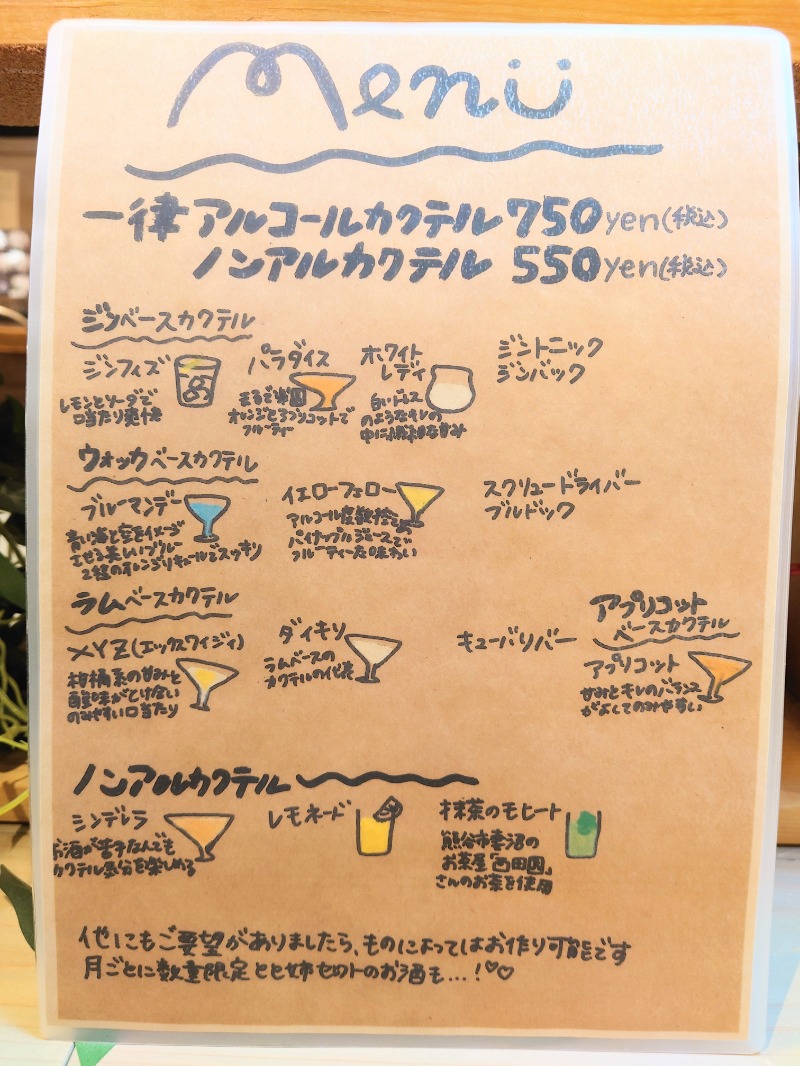 Menü
一律 アルコールカクテル 750yen(税込)
ノンアルカクテル 550yen(税込)
ジンベースカクテル
ジンフィズ
レモンとソーダで
口当たり爽快
パラダイス
まるで楽園
オレンジとアプリコットで
フルーティー
ホワイト
レディ
白いドレス
のようなキレの
中に繊細な甘み
ジントニック
ジンバック
ウォッカベースカクテル
ブルーマンデー
青い海と空をイメージ
させる美しいブルー
2種のオレンジリキュールでスッキリ
イエローフェロー
アルコール度数捨てろ
パイナップルジュースで
フルーティーな味わい
スクリュードライバー
ブルドック
ラムベースカクテル
XYZ(エックスワイジィ)
柑橘系の甘みと
酸味がとけない
のみやすい口当たり
ダイキリ
ラムベースの
カクテルの代表
キューバリバー
アプリコット
ベースカクテル
アプリコット
甘みとキレのバランス
がよくてのみやすい
ノンアルカクテル
シンデレラ
お酒が苦手なんでも
カクテル気分を楽しめる
レモネード
抹茶のモヒート
熊谷市妻沼の
お茶屋「西田園」
さんのお茶を使用
他にもご要望がありましたら、ものによってはお作り可能です
月ごとに数量限定とも姉セレクトのお酒も…!♡♡